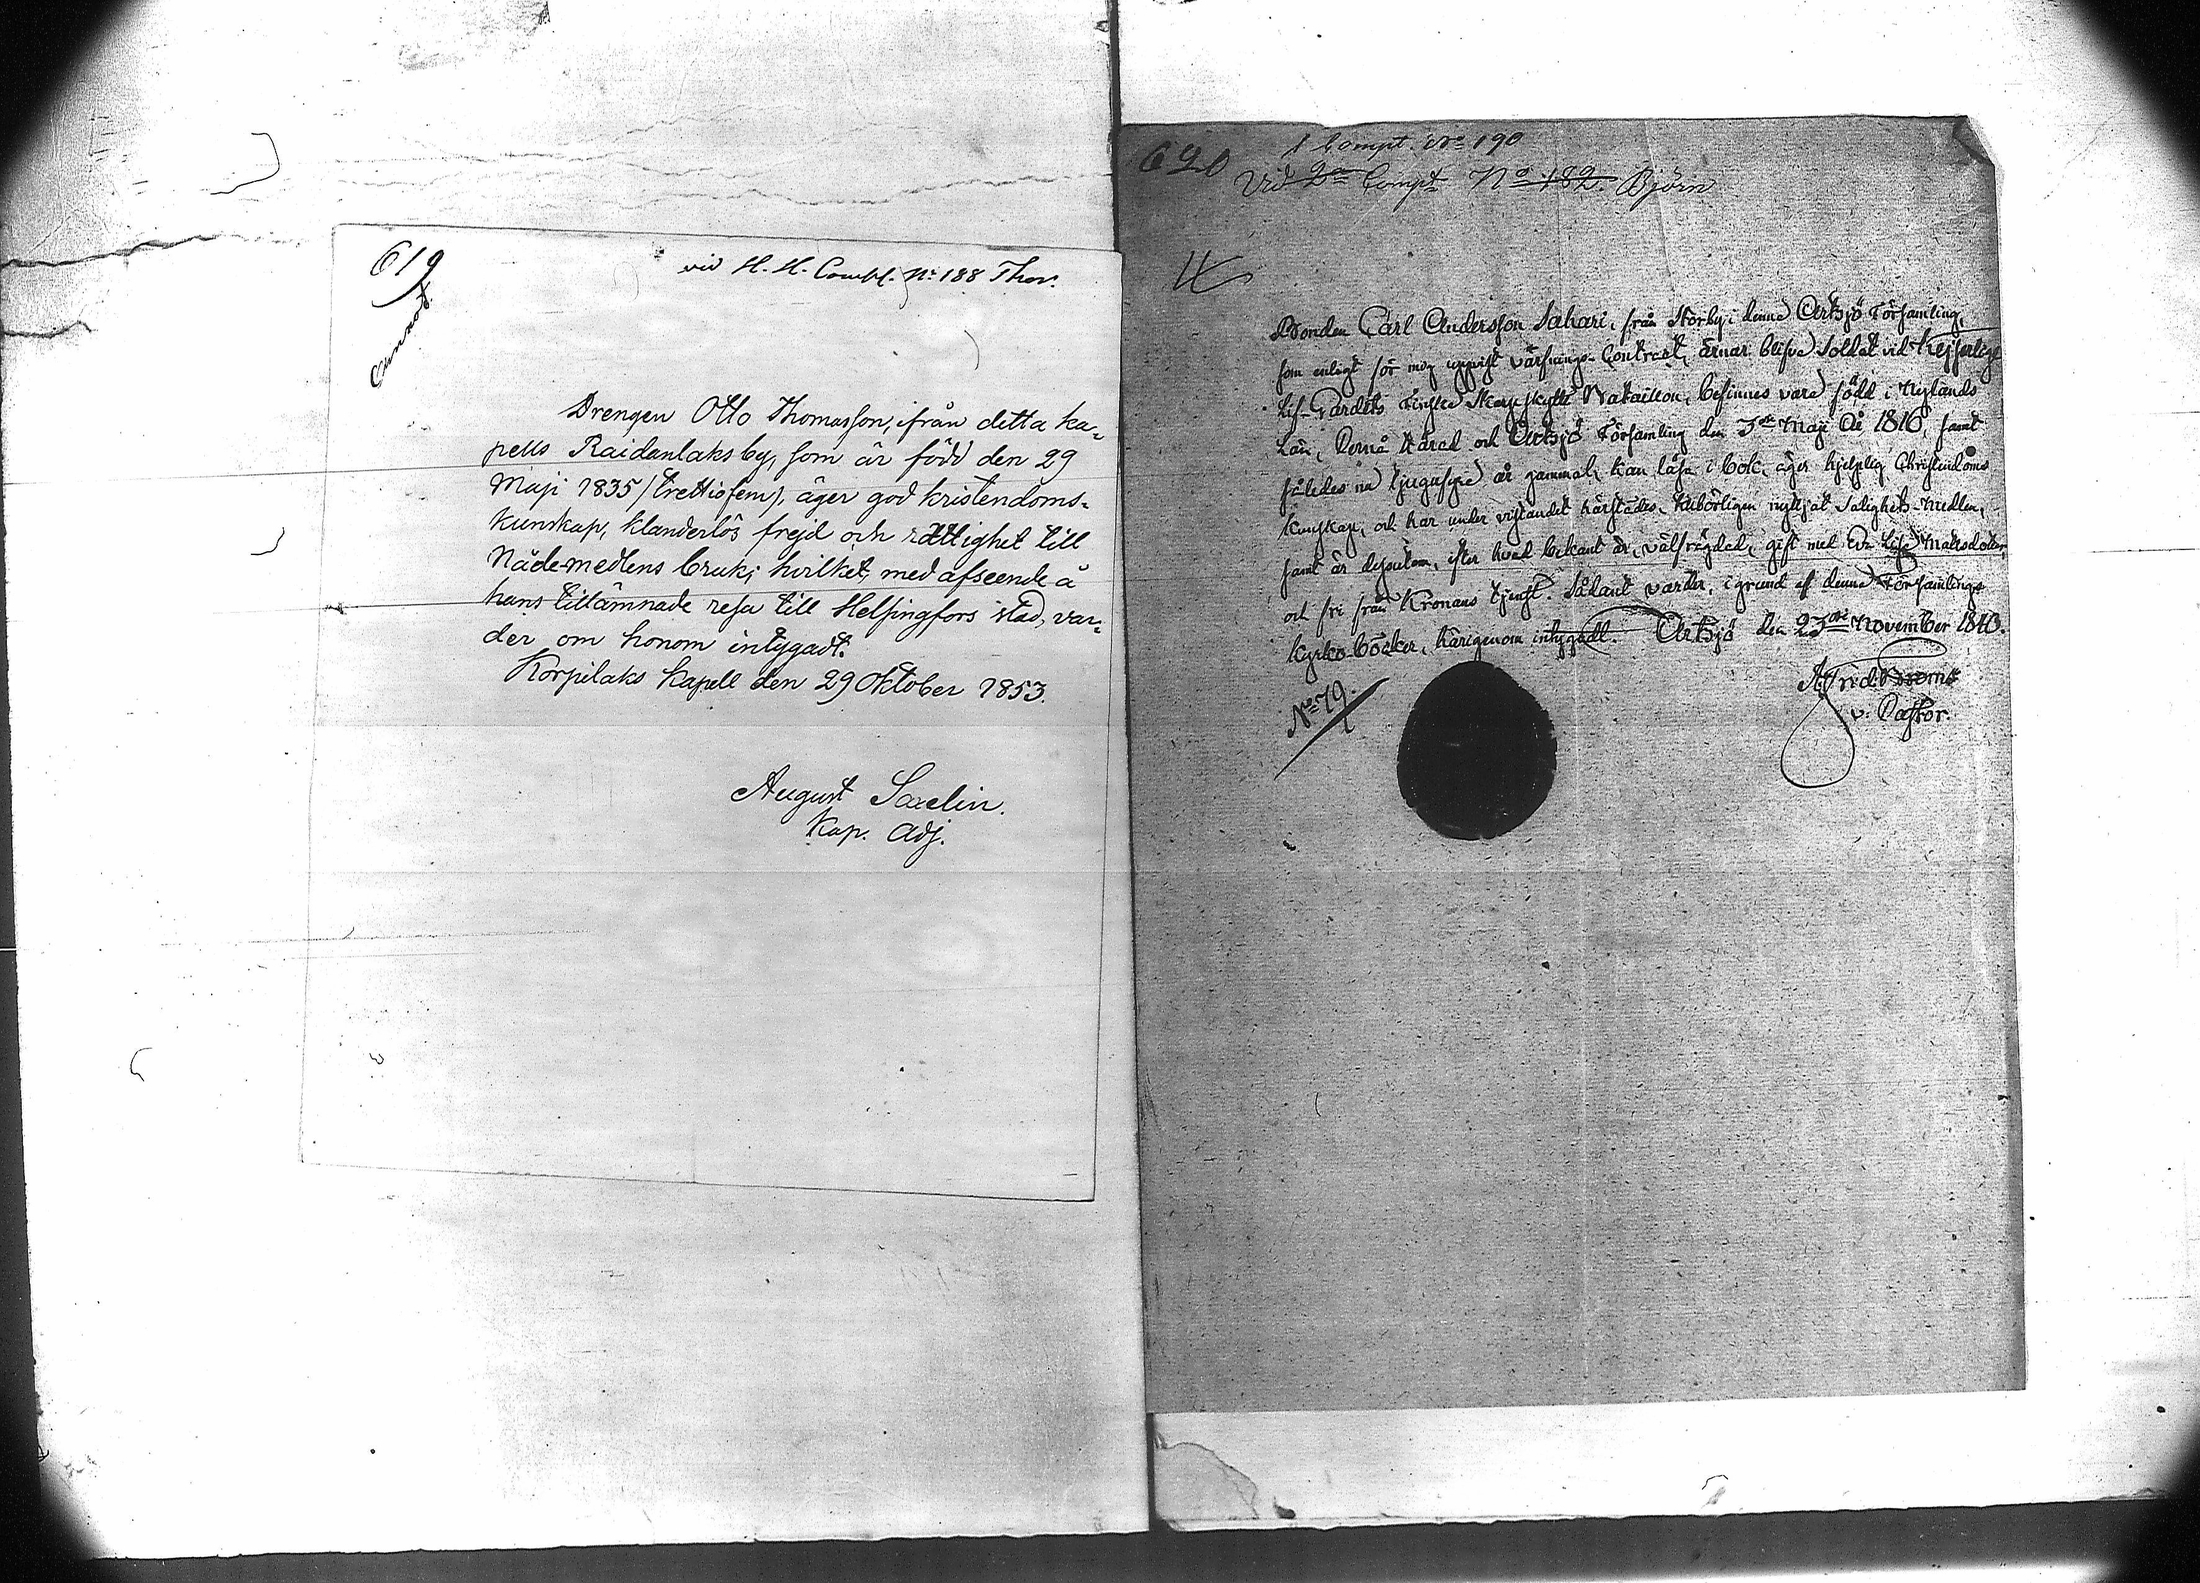 619
Annot.
vid H. H. Compt. No 188 Thor.
Drengen Otto Thomasson, ifrån detta ka-
pells Raidanlaks by, som är född den 29
Maji 1835 /trettiofem/, äger god kristendoms-
kunskap, klanderlös frejd och rättighet till
Nådemedlens bruk; hvilket, med afseende å
hans tillämnade resa till Helsingfors stad, var-
der om honom intygadt.
Korpilaks Kapell den 29 Oktober 1853.
August Saxelin.
Kap. Adj.
620
1 Compt. No 190
Vid 2a Compt No 182. Björn
Bonden Carl Andersson Sahari, från Storby i denna Artsjö Församling,
som enligt för mig uppvist värfnings-Contract, ärnar blifva Soldat vid Kejserliga
Lif-Gardets Finska Skarpskytte Bataillon, befinnes vara född i Nylands
Län, Perno härad och Artsjö Församling den 3die Maji År 1816, samt
således nu tjugufyra år gammal, kan läsa i bok, äger hjelplig Christendoms
kunskap, och har under vistandet härstädes, behörligen nyttjat Salighets-Medlen,
samt är dessutom, efter hvad bekant är, välfrägdad, gift med Eva Lisa Matsdotter,
och fri från Kronans tjenst. Sådant varder, i grund af denna Församlings
Kyrko-böcker, härigenom intygadt. Artsjö den 23die November 1840.
v. Pastor.
No 79.